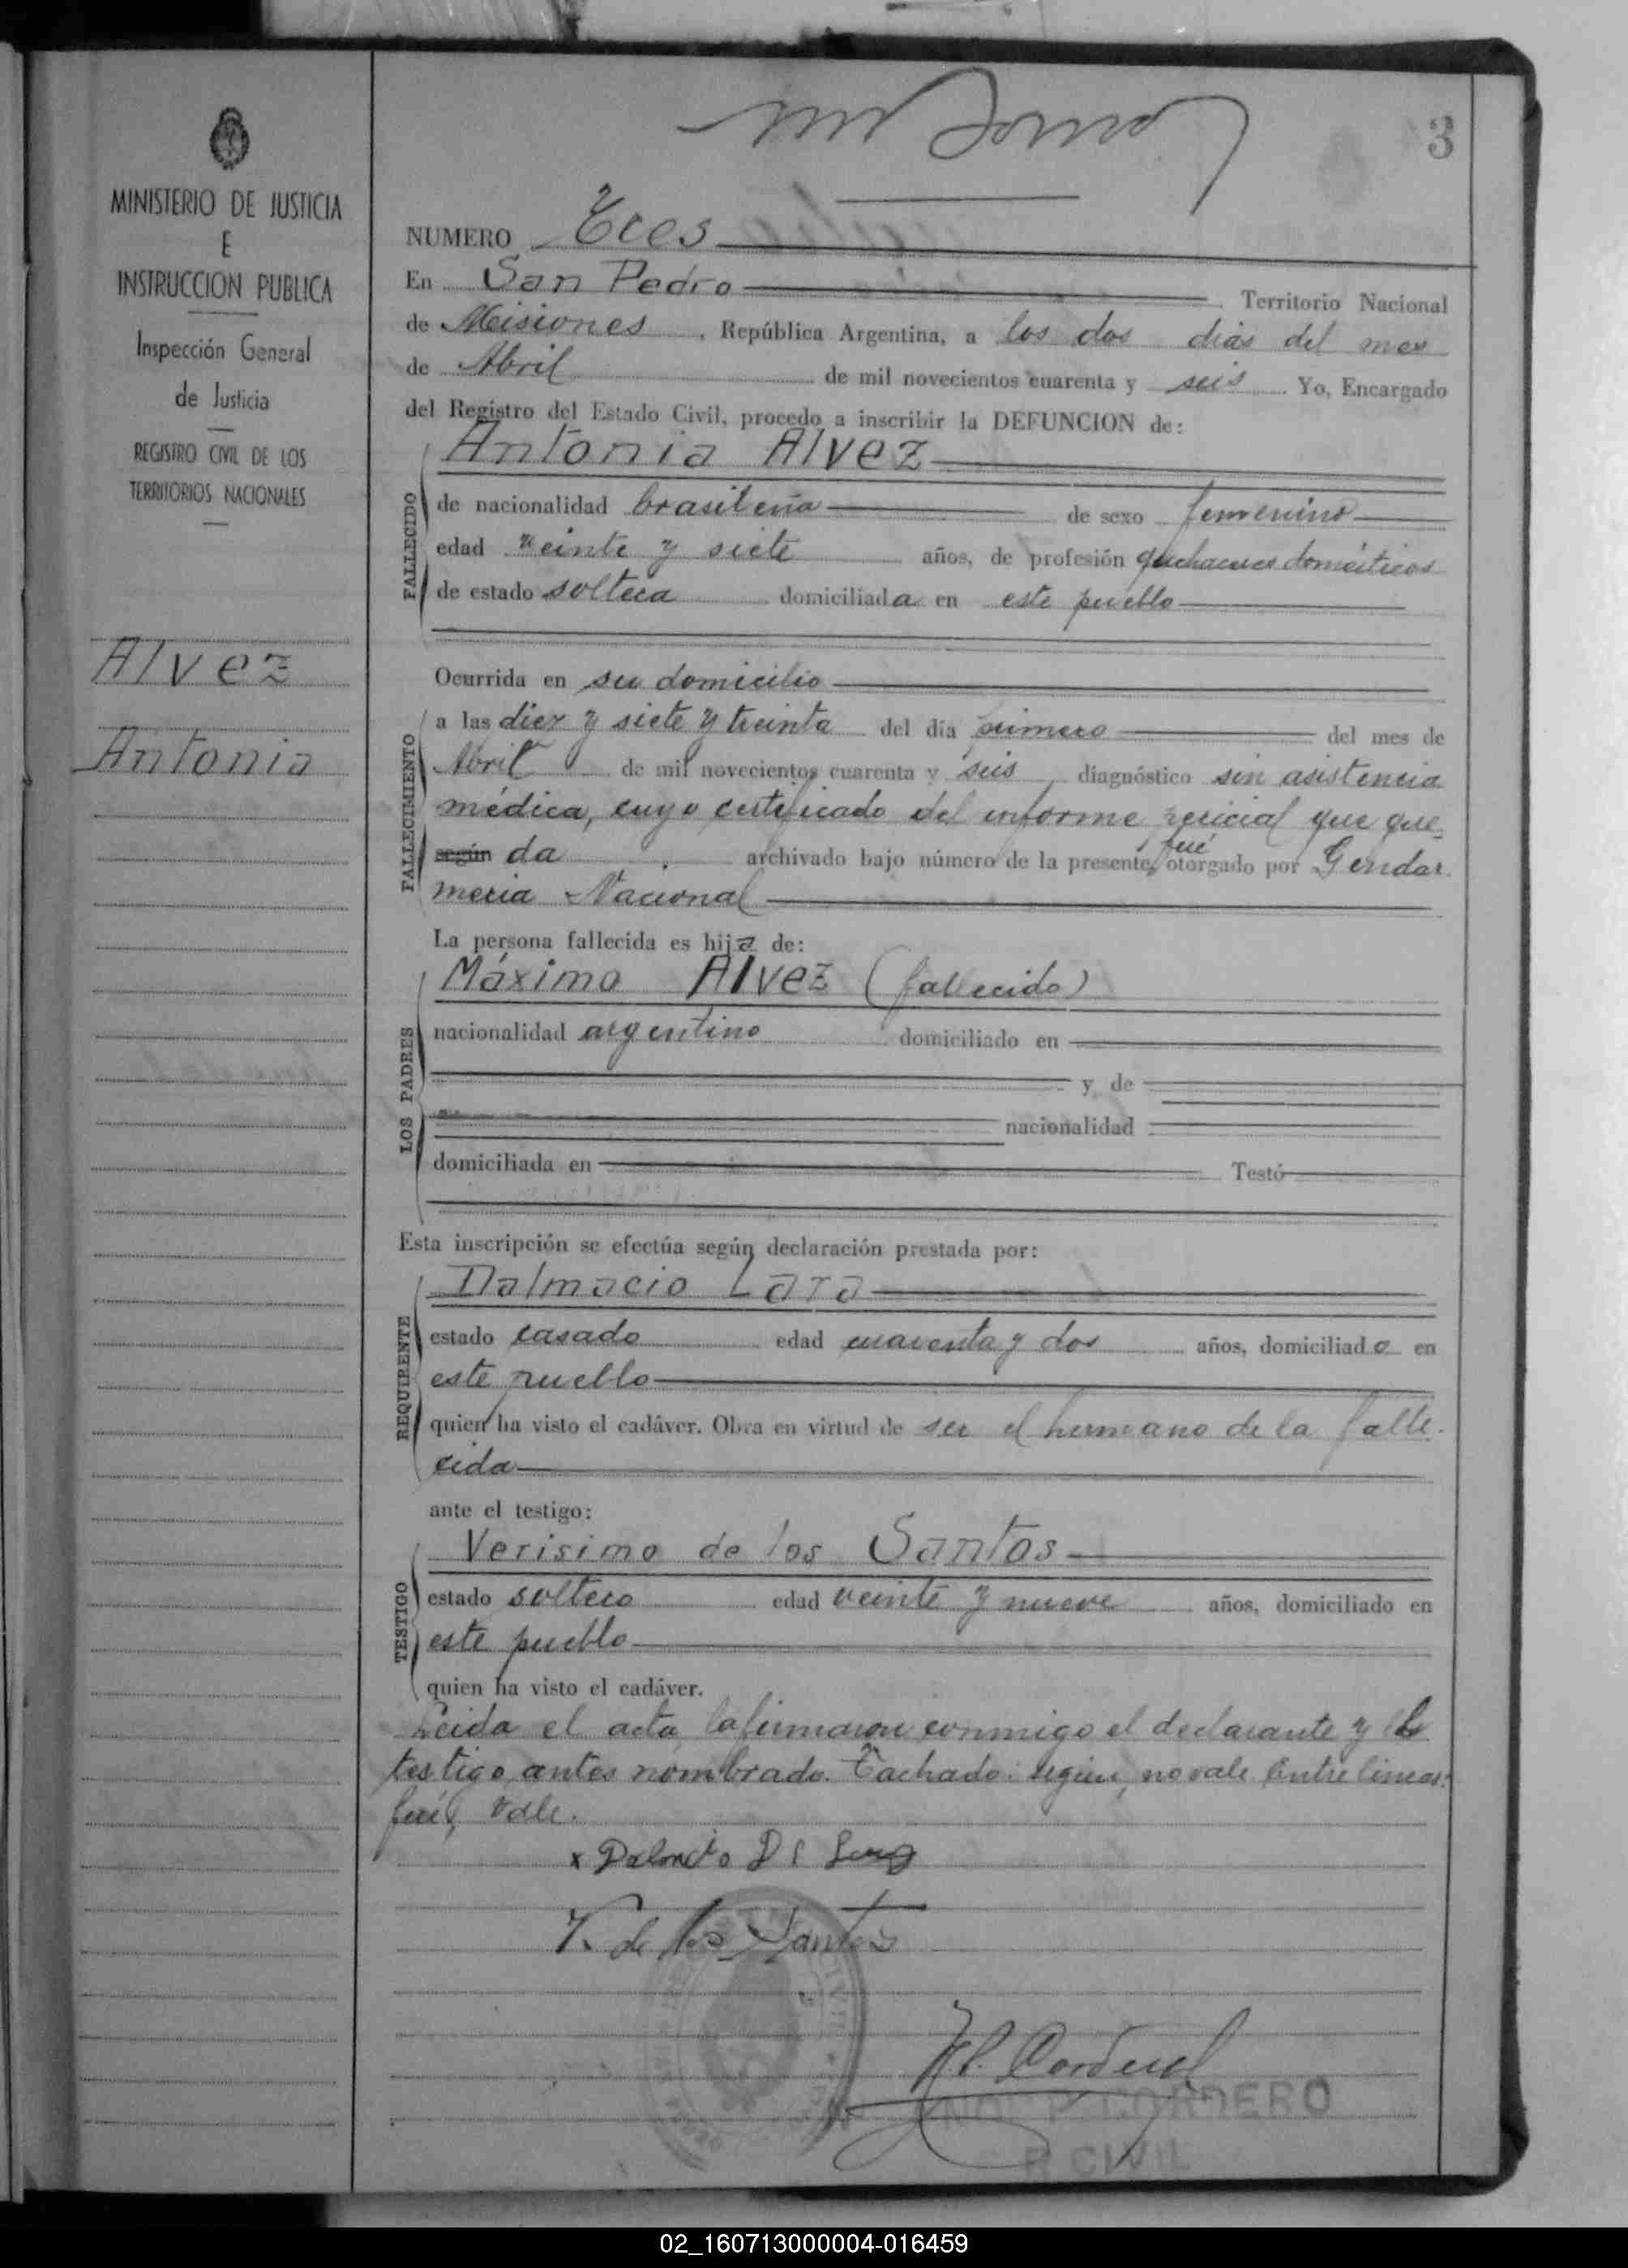 3
MINISTERIO DE JUSTICIA
E
INSTRUCCION PUBLICA
Inspección General
de Justicia
REGISTRO CIVIL DE LOS
TERRITORIOS NACIONALES
Alvez
Antonia
NUMERO Tres
En San Pedro Territorio Nacional
de Misiones, República Argentina, a los dos dias del mes
de Abril de mil novecientos cuarenta y seis Yo, Encargado
del Registro del Estado Civil, procedo a inscribir la DEFUNCION de:
FALLECIDO
Antonia Alvez
de nacionalidad brasileña de sexo femenino
edad veinte y siete años, de profesión quehaceres domésticos
de estado soltera domiciliada en este pueblo
Ocurrida en su domicilio
FALLECIMIENTO
a las diez y siete y treinta del día primero del mes de
Abril de mil novecientos cuarenta y seis diagnóstico sin asistencia
médica, cuyo certificado del informe pericial que que-
según da archivado bajo número de la presente, fué otorgado por Gendar-
meria Nacional
La persona fallecida es hija de:
LOS PADRES
Máximo Alvez (fallecido)
nacionalidad argentino domiciliado en
y de
nacionalidad
domiciliada en Testó
Esta inscripción se efectúa según declaración prestada por:
REQUIRENTE
Dalmacio Lara
estado casado edad cuarenta y dos años, domiciliado en
este pueblo
quien ha visto el cadáver. Obra en virtud de ser el hermano de la falle-
cida
ante el testigo:
TESTIGO
Verisimo de los Santos
estado soltero edad veinte y nueve años, domiciliado en
este pueblo
quien ha visto el cadáver.
Leida el acta, la firmaron conmigo el declarante y el
testigo antes nombrado. Tachado: según, no vale. Entre lineas:
fué, vale.
V. de los Santos
CORDERO
R CIVIL
02_160713000004-016459